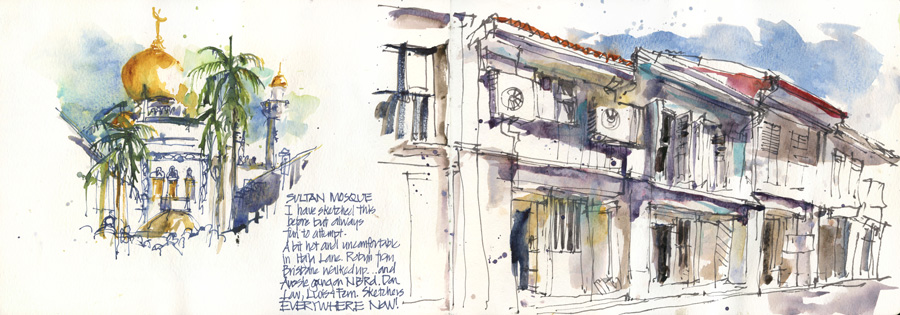 SULTAN MOSQUE
I have sketched this
before but always
fun to attempt.
A bit hot and uncomfortable
in Haji Lane. Robyn from
Brisbane walked up...and
Aussie gang on N B Rd. Don
Law, Luis + Fern. Sketchers
EVERYWHERE NOW!